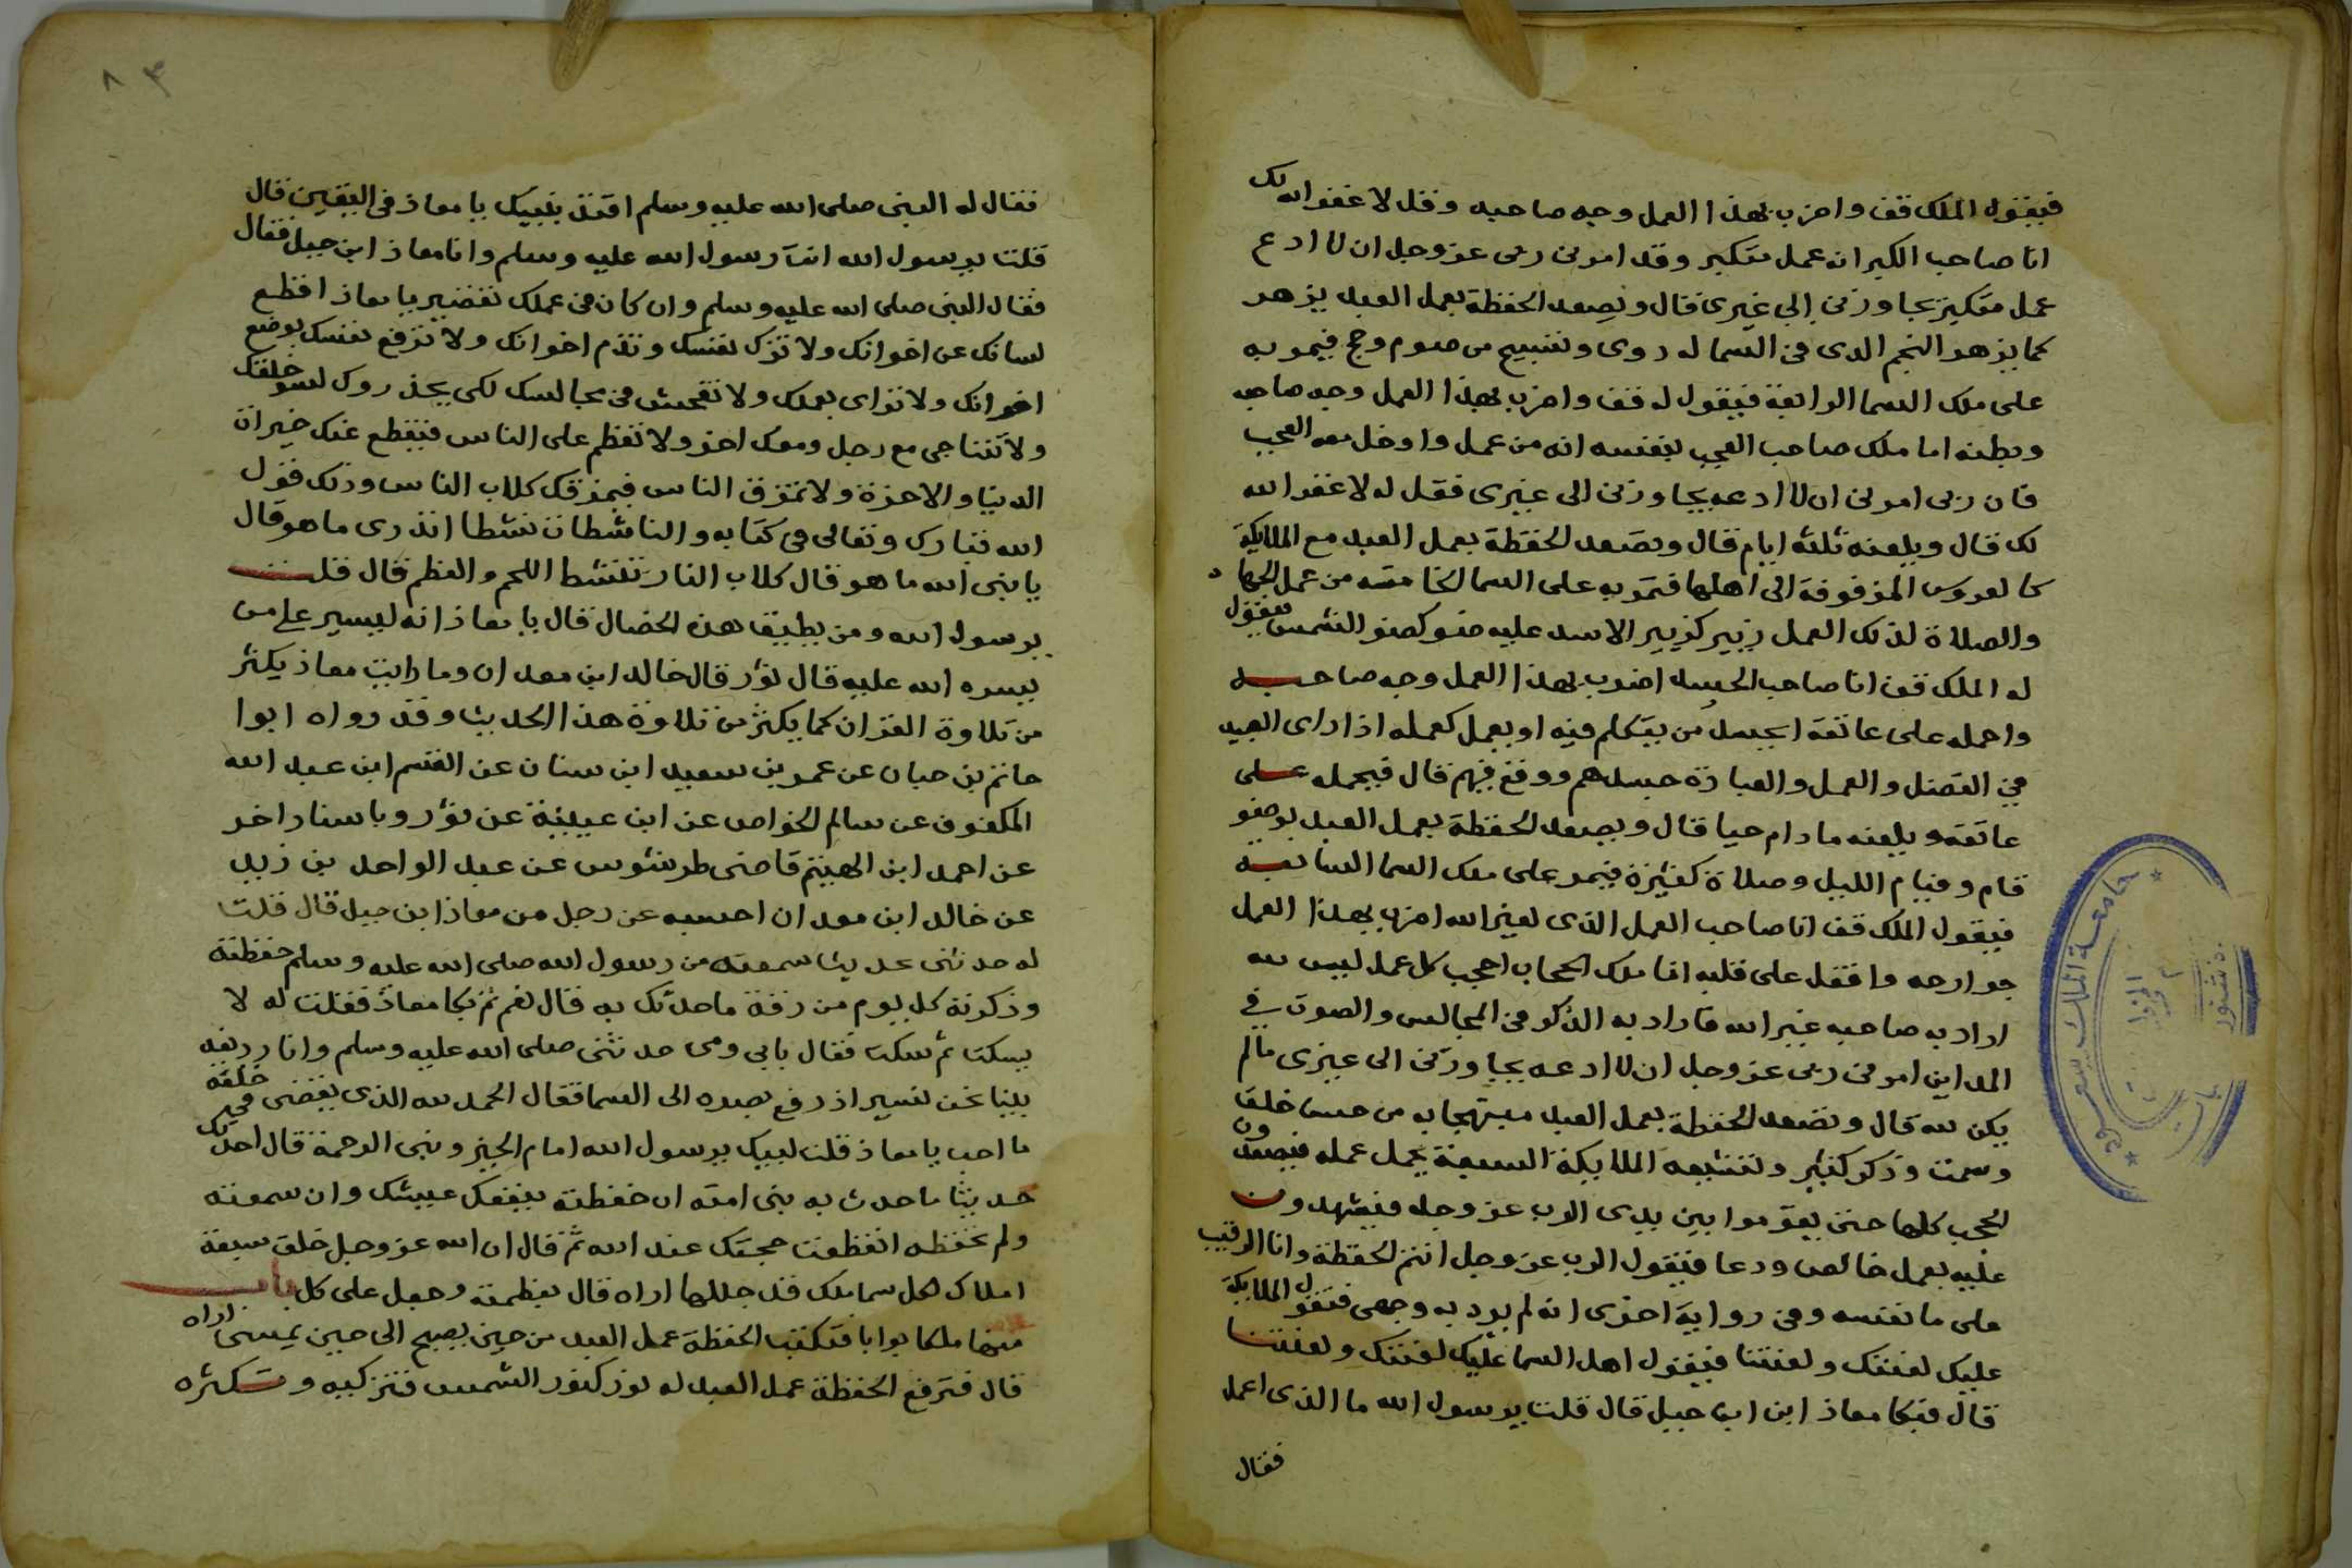 فيقول الملك قف واضرب بهذا العمل وجه صاحبه وقل لا غفر الله لك
انا صاحب الكبر انه عمل متكبر وقد امرني ربي عز وجل ان لا ادع
عمل متكبر يجاوزني الي غيري قال وتصعد الحفظة بعمل العبد يزهر
كما يزهر النجم الذي في السما له دوي وتسبيح من صوم وحج فيمر به
على ملك السما الرابعة فيقول له قف واضرب بهذا العمل وجه صاحبه
وبطنه اما ملك صاحب العجب بنفسه انه من عمل وادخل معه العجب
فان ربي امرني ان لا ادعه يجاوزني الى غيري فقل له لا غفر الله
لك قال ويلعنه ثلثة ايام قال وتصعد الحفظة بعمل العبد مع الملايكة
كالعروس المزفوفة الى اهلها فتمر به على السما الخامسه من عمل الجهاد
والصلاة لذلك العمل زبير كزبير الاسد عليه ضو كضو الشمس فيقول
له الملك قف انا صاحب الحسد اضرب بهذا العمل وجه صاحبه
واحمله على عاتقه ايحسد من يتكلم فيه او يعمل كعمله اذا راى العبيد
في الفضل والعمل والعبادة حسدهم ووقع فيهم قال فيحمله على
عاتقه ويلعنه ما دام حيا قال ويصعد الحفظة بعمل العبد بوضو
قام وقيام الليل وصلاة كثيرة فيمر على ملك السما السابعه
فيقول الملك قف انا صاحب العمل الذى لغير الله اضرب بهذا العمل
جوارحه واقفل على قلبه انا ملك الحجاب احجب كل عمل ليس لله
اراد به صاحبه غير الله فاراد به الذكر في المجالس والصوت في
المداين امرني ربي عز وجل ان لا ادعه يجاوزني الى غيري مالم
يكن لله قال وتصعد الحفظة بعمل العبد مبتهجا به من حسن خلق
وسمت وذكر كثير وتشيعه الملايكة السبعة بحمل عمله فيصعدون
الحجب كلها حتى يقوموا بين يدى الرب عز وجل فيشهدون
عليه بعمل خالص ودعا فيقول الرب عز وجل انتم الحفظة وانا الرقيب
على ما نفسه وفي رواية اخرى انه لم يرد به وجهي فتقول الملايكة
عليك لعنتك ولعنتنا فيقول اهل السما عليك لعنتك ولعنتنا
قال فبكا معاذ ابن جبل قال قلت يرسول الله ما الذى اعمل
فقال
فقال له النبي صلى الله عليه وسلم اقتد بنبيك يا معاذ في اليقين قال
قلت يرسول الله انت رسول الله عليه وسلم وانا معاذ ابن جبل فقال
فقال النبي صلى الله عليه وسلم وان كان في عملك تقصير يا معاذ اقطع
لسانك عن اخوانك ولا تزك نفسك وتذم اخوانك ولا ترفع نفسك بوضع
اخوانك ولا تراى بعملك ولا تفحش في مجالسك لكي يحذروك لسو خلقك
ولا تتناجى مع رجل ومعك اخر ولا تعظم على الناس فيقطع عنك خيرات
الدنيا والاخرة ولا تمزق الناس فيمزقك كلاب الناس وذلك قول
الله تبارك وتعالى في كتابه والناشطات نشطا اتدرى ما هو قال
يا نبي الله ما هو قال كلاب النار تنشط اللحم والعظم قال قلت
يرسول الله ومن يطيق هذه الخصال قال يا معاذ انه ليسير على من
يسره الله عليه قال ثور قال خالد ابن معدان وما رايت معاذ يكثر
من تلاوة القران كما يكثر من تلاوة هذا الحديث وقد رواه ابوا
حاتم بن حبان عن عمر بن سعيد ابن سنان عن القسم ابن عبد الله
المكفوف عن سالم الخواص عن ابن عيينة عن ثور وباسناد اخر
عن احمد ابن الهيثم قاضى طرسوس عن عبد الواحد بن زيد
عن خالد ابن معدان احسبه عن رجل من معاذ ابن جبل قال قلت
له حدثنى حديثا سمعته من رسول الله صلى الله عليه وسلم حفظته
وذكرته كل يوم من رقة ما حدثك به قال نعم ثم بكا معاذ فقلت له لا
يسكت ثم سكت فقال بابي وامي حدثنى صلى الله عليه وسلم وانا رديفه
بينا نحن نسير اذ رفع بصره الى السما فقال الحمد لله الذى يقضى في خلقه
ما احب يا معاذ قلت لبيك يرسول الله امام الخير ونبي الرحمة قال احدثك
حديثا ما حدث به نبي امته ان حفظته ينفعك عيشك وان سمعته
ولم تحفظه انقطعت حجتك عند الله ثم قال ان الله عز وجل خلق سبعة
املاك لكل سما ملك قد جللها اراه قال بعظمته وجعل على كل باب
منها ملكا بوابا فتكتب الحفظة عمل العبد من حين يصبح الى حين يمسى اراه
قال فترفع الحفظة عمل العبد له نور كنور الشمس فتزكيه وتكثره